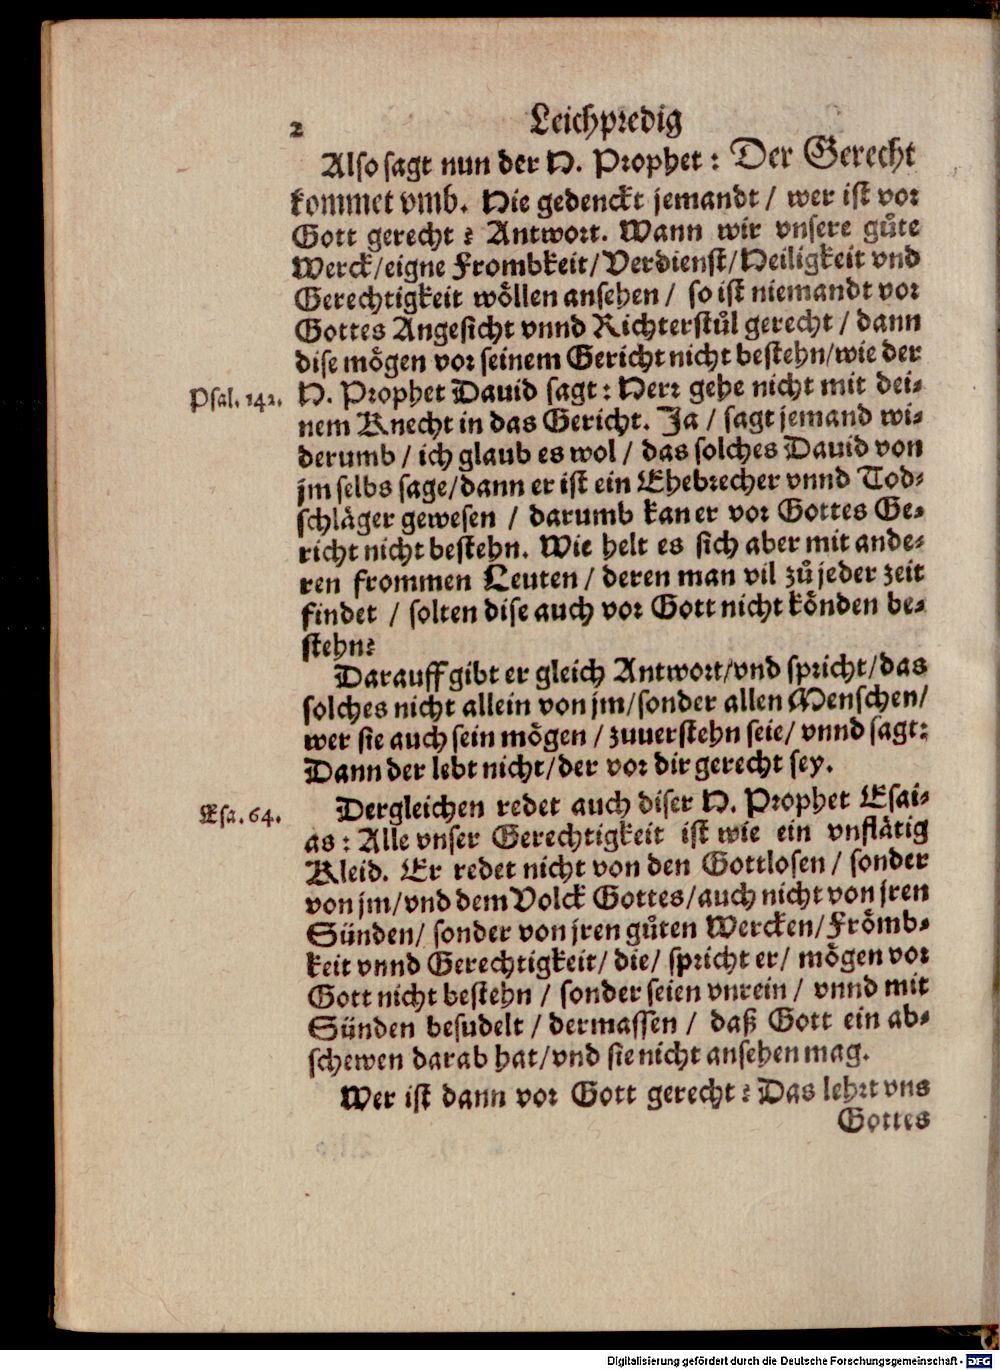 2 Leichpredig
Also sagt nun der H. Prophet: Der Gerecht
kommet vmb. Hie gedenckt jemandt / wer ist vor
Gott gerecht? Antwort. Wann wir vnsere gůte
Werck/eigne Frombkeit/Verdienst/Heiligkeit vnd
Gerechtigkeit wöllen ansehen / so ist niemandt vor
Gottes Angesicht vnnd Richterstůl gerecht / dann
dise mögen vor seinem Gericht nicht bestehn/wie der
Psal. 142. H. Prophet Dauid sagt: Herr gehe nicht mit dei-
nem Knecht in das Gericht. Ja / sagt jemand wi-
derumb / ich glaub es wol / das solches Dauid von
jm selbs sage/dann er ist ein Ehebrecher vnnd Tod-
schläger gewesen / darumb kan er vor Gottes Ge-
richt nicht bestehn. Wie helt es sich aber mit ande-
ren frommen Leuten / deren man vil zů jeder zeit
findet / solten dise auch vor Gott nicht könden be-
stehn?
Darauff gibt er gleich Antwort/vnd spricht/das
solches nicht allein von jm/sonder allen Menschen/
wer sie auch sein mögen / zuuerstehn seie/ vnnd sagt:
Dann der lebt nicht/der vor dir gerecht sey.
Esa. 64. Dergleichen redet auch diser H. Prophet Esai-
as: Alle vnser Gerechtigkeit ist wie ein vnflätig
Kleid. Er redet nicht von den Gottlosen / sonder
von jm/vnd dem Volck Gottes/auch nicht von jren
Sünden/ sonder von jren gůten Wercken/Frömb-
keit vnnd Gerechtigkeit/ die/ spricht er/ mögen vor
Gott nicht bestehn / sonder seien vnrein / vnnd mit
Sünden besudelt / dermassen / daß Gott ein ab-
schewen darab hat/vnd sie nicht ansehen mag.
Wer ist dann vor Gott gerecht? Das lehrt vns
Gottes
Digitalisierung gefördert durch die Deutsche Forschungsgemeinschaft - DFG